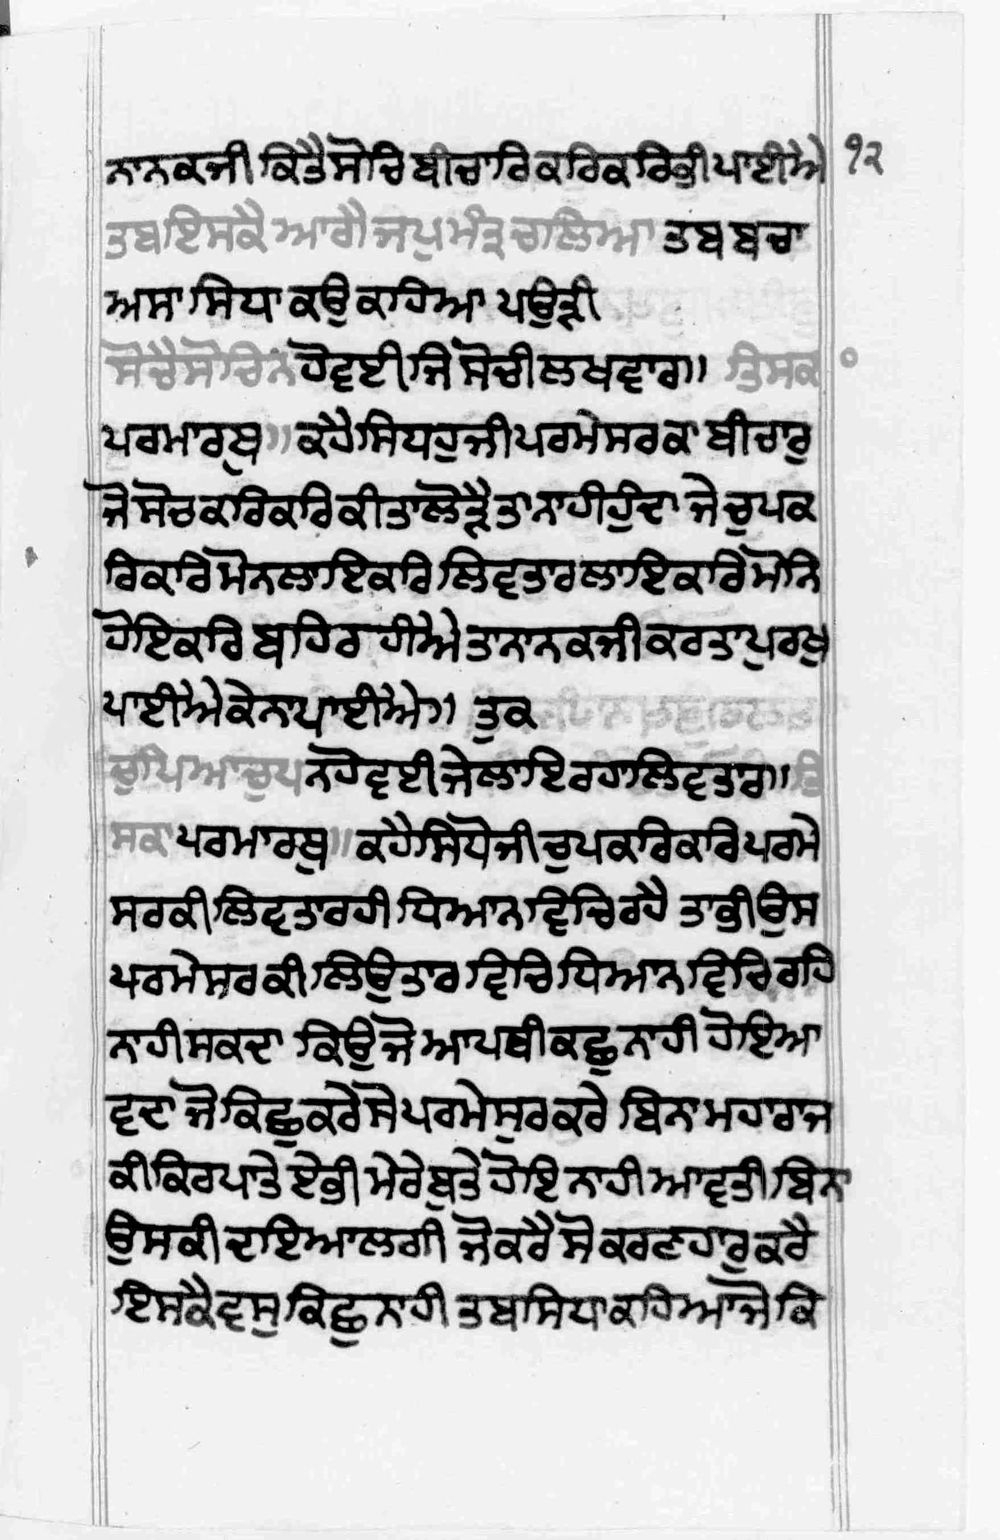 ਨਾਨਕਜੀ ਕਿਤੈ ਸੋਚਿ ਬੀਚਾਰਿ ਕਰਿ ਕਰਿ ਭੀ ਪਾਈਐ ੧੨
ਤਬ ਇਸਕੈ ਆਗੈ ਜਪੁ ਮੰਤ੍ਰ ਚਲਿਆ ਤਬ ਬਚਾ
ਅਸਾ ਸਿਧਾ ਕਉ ਕਾਹਿਆ ਪਉੜੀ
ਸੋਚੈ ਸੋਚਿ ਨ ਹੋਵਈ ਜਿ ਸੋਚੀ ਲਖ ਵਾਰ॥ ਤਿਸਕਾ
ਪਰਮਾਰਥੁ॥ ਕਹੈ ਸਿਧਹੁ ਜੀ ਪਰਮੇਸਰ ਕਾ ਬੀਚਾਰੁ
ਜੋ ਸੋਚ ਕਰਿ ਕਰਿ ਕੀਤਾ ਲੋੜੈ ਤਾ ਨਾਹੀ ਹੁੰਦਾ ਜੇ ਚੁਪ ਕ
ਰਿ ਕਰਿ ਮੋਨ ਲਾਇ ਕਰਿ ਲਿਵਤਾਰ ਲਾਇ ਕਰਿ ਮੋਨਿ
ਹੋਇ ਕਰਿ ਬਹਿ ਰਹੀਐ ਤਾ ਨਾਨਕ ਜੀ ਕਰਤਾ ਪੁਰਖੁ
ਪਾਈਐ ਕੇ ਨਾ ਪਾਈਐ॥ ਤੁਕ
ਚੁਪਿਆ ਚੁਪ ਨ ਹੋਵਈ ਜੇ ਲਾਇ ਰਹਾ ਲਿਵਤਾਰ॥ ਤਿ
ਸਕਾ ਪਰਮਾਰਥੁ॥ ਕਹੈ ਸਿਧੋ ਜੀ ਚੁਪ ਕਰਿ ਕਰਿ ਪਰਮੇ
ਸਰ ਕੀ ਲਿਵਤਾਰ ਹੀ ਧਿਆਨ ਵਿਚਿ ਰਹੈ ਤਾ ਭੀ ਉਸ
ਪਰਮੇਸਰ ਕੀ ਲਿਉਤਾਰ ਵਿਚਿ ਧਿਆਨ ਵਿਚਿ ਰਹਿ
ਨਾਹੀ ਸਕਦਾ ਕਿਉ ਜੋ ਆਪਥੀ ਕਛੁ ਨਾਹੀ ਹੋਇਆ
ਵਦਾ ਜੋ ਕਿਛੁ ਕਰੇ ਸੋ ਪਰਮੇਸੁਰ ਕਰੇ ਬਿਨਾ ਮਹਾਰਾਜ
ਕੀ ਕਿਰਪਾ ਤੇ ਏ ਭੀ ਮੇਰੇ ਬੁਤੇ ਹੋਇ ਨਾਹੀ ਆਵਤੀ ਬਿਨਾ
ਉਸਕੀ ਦਾਇਆਲਗੀ ਜੋ ਕਰੈ ਸੋ ਕਰਣਹਾਰੁ ਕਰੈ
ਇਸਕੈ ਵਸੁ ਕਿਛੁ ਨਾਹੀ ਤਬ ਸਿਧਾ ਕਹਿਆ ਜੋ ਕਿ